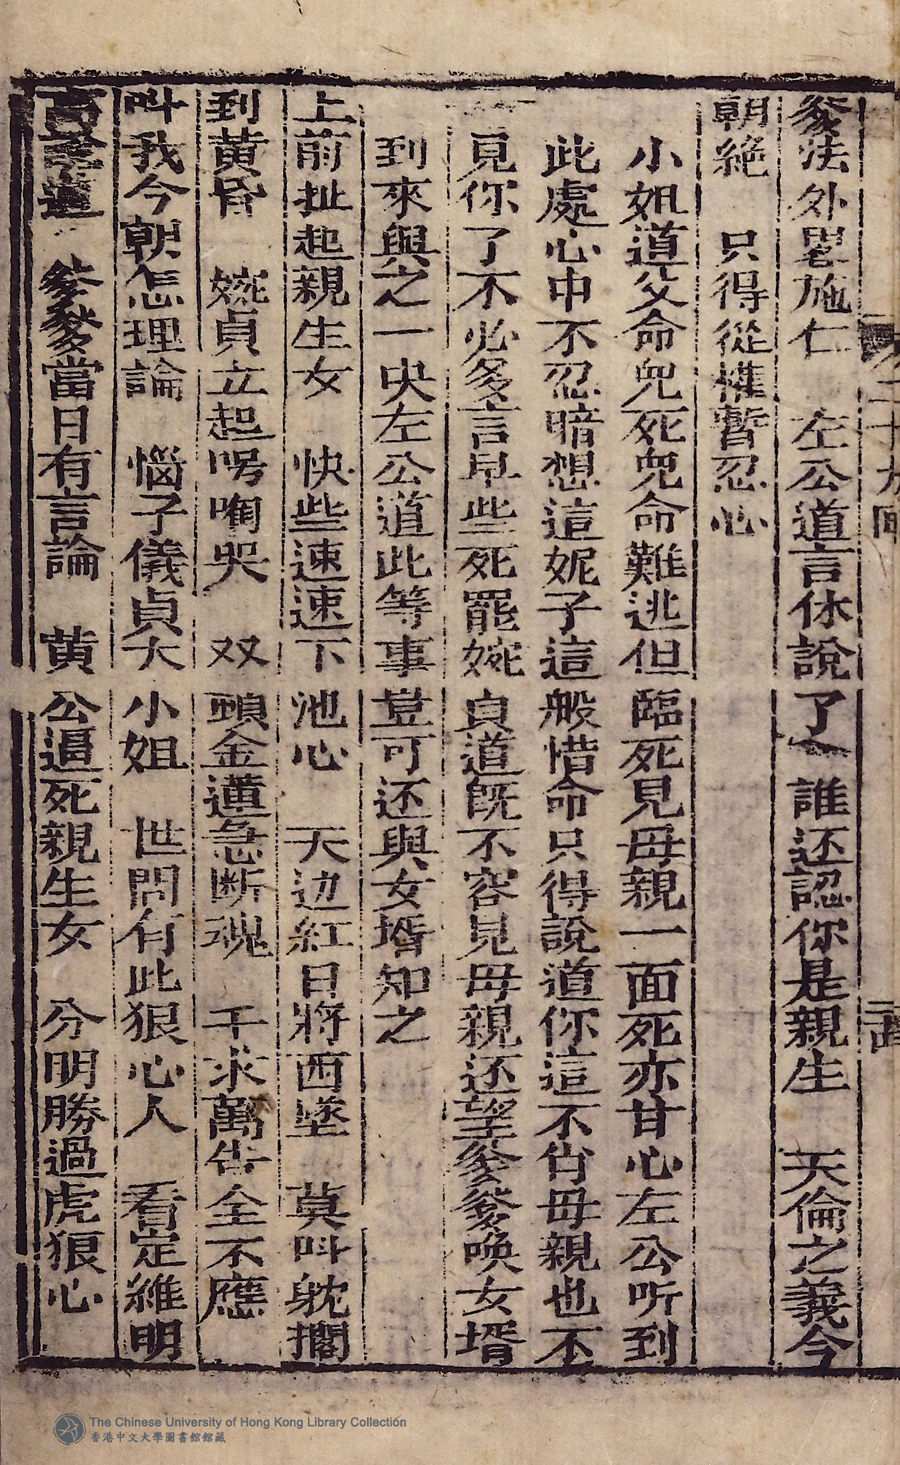 爹法外畧施仁　左公道言休說了　誰还認你是親生　天倫之義今
朝絶　只得從權暫忍心
小姐道父命兒死兒命難逃但臨死見母親一面死亦甘心左公听到
此處心中不忍暗想這妮子這般惜命只得說道你這不肖母親也不
見你了不必多言早些死罷婉貞道旣不容見母親还望爹爹喚女壻
到來與之一决左公道此等事豈可还與女壻知之
上前扯起親生女　快些速速下池心　天边紅日將西墜　莫呌躭擱
到黃昏　婉貞立起呺啕哭　双頭金蓮急断魂　千求萬告全不應
呌我今朝怎理論　惱子儀貞大小姐　世間有此狠心人　看定維明
高聲道　爹爹當日有言論　黃公逼死親生女　分明勝過虎狼心
二十九囬
The Chinese University of Hong Kong Library Collection
香港中文大學圖書館館藏